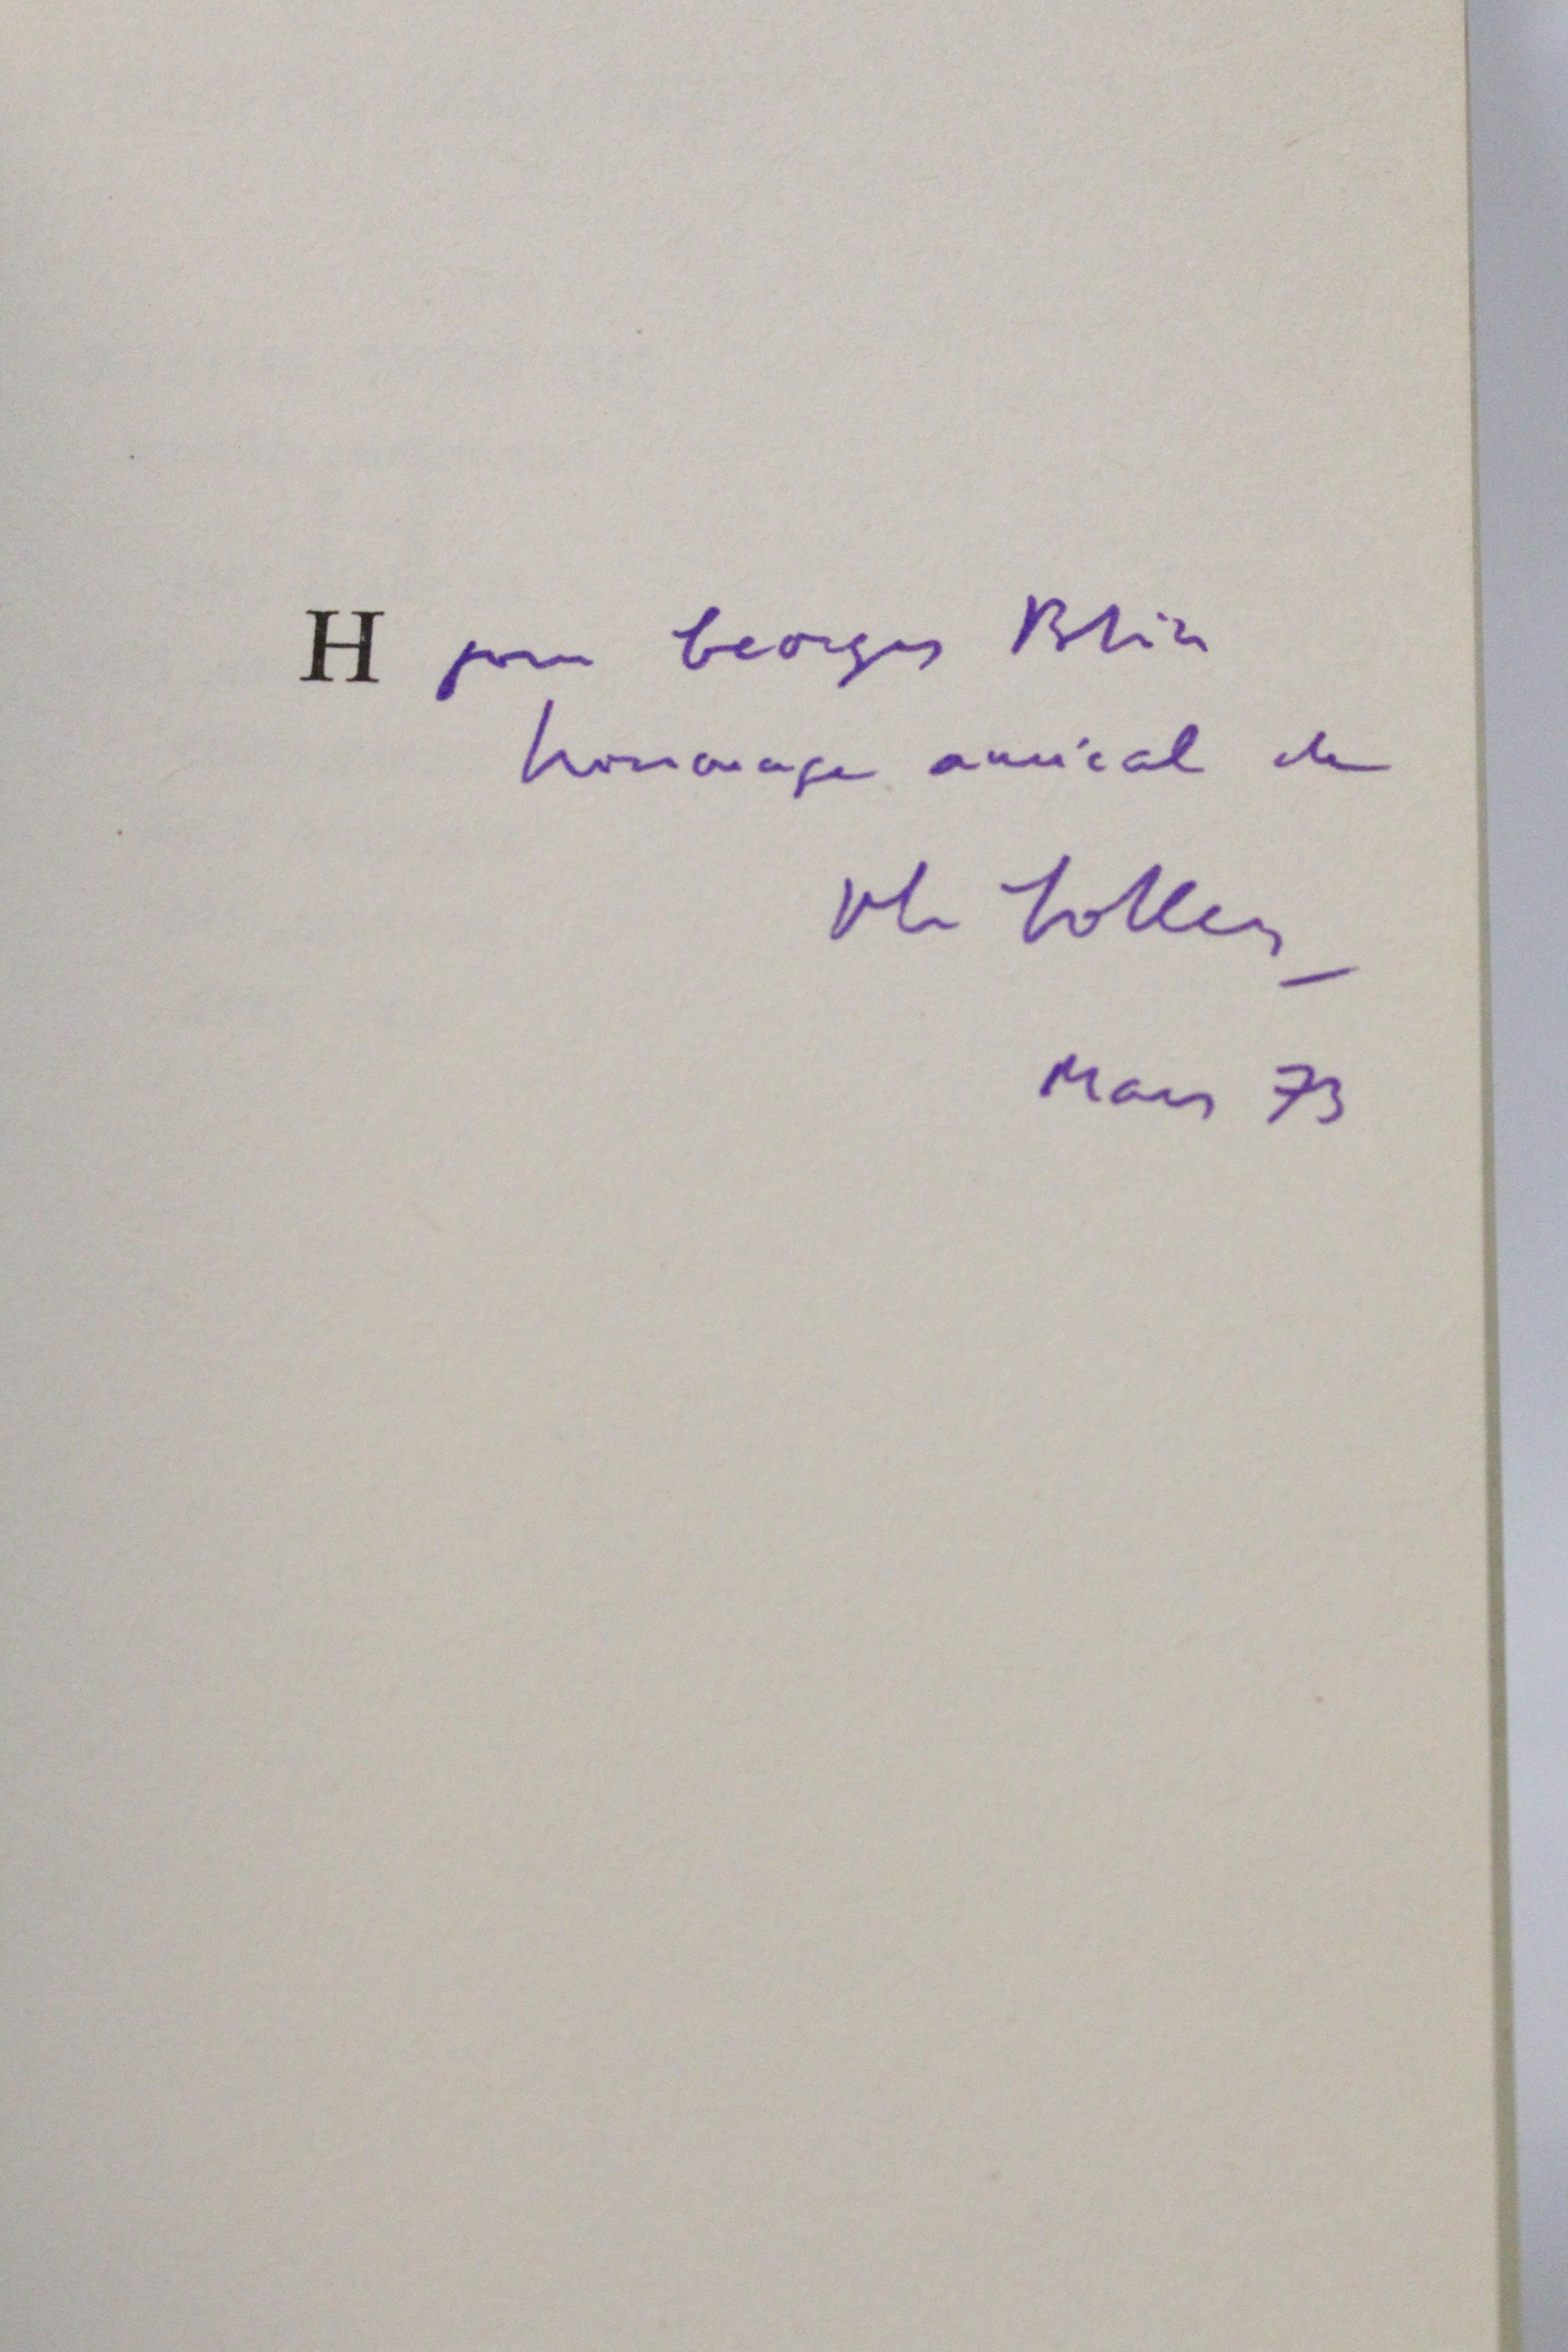 H pour Georges Blin
hommage amical de
Ph Sollers
Mars 73